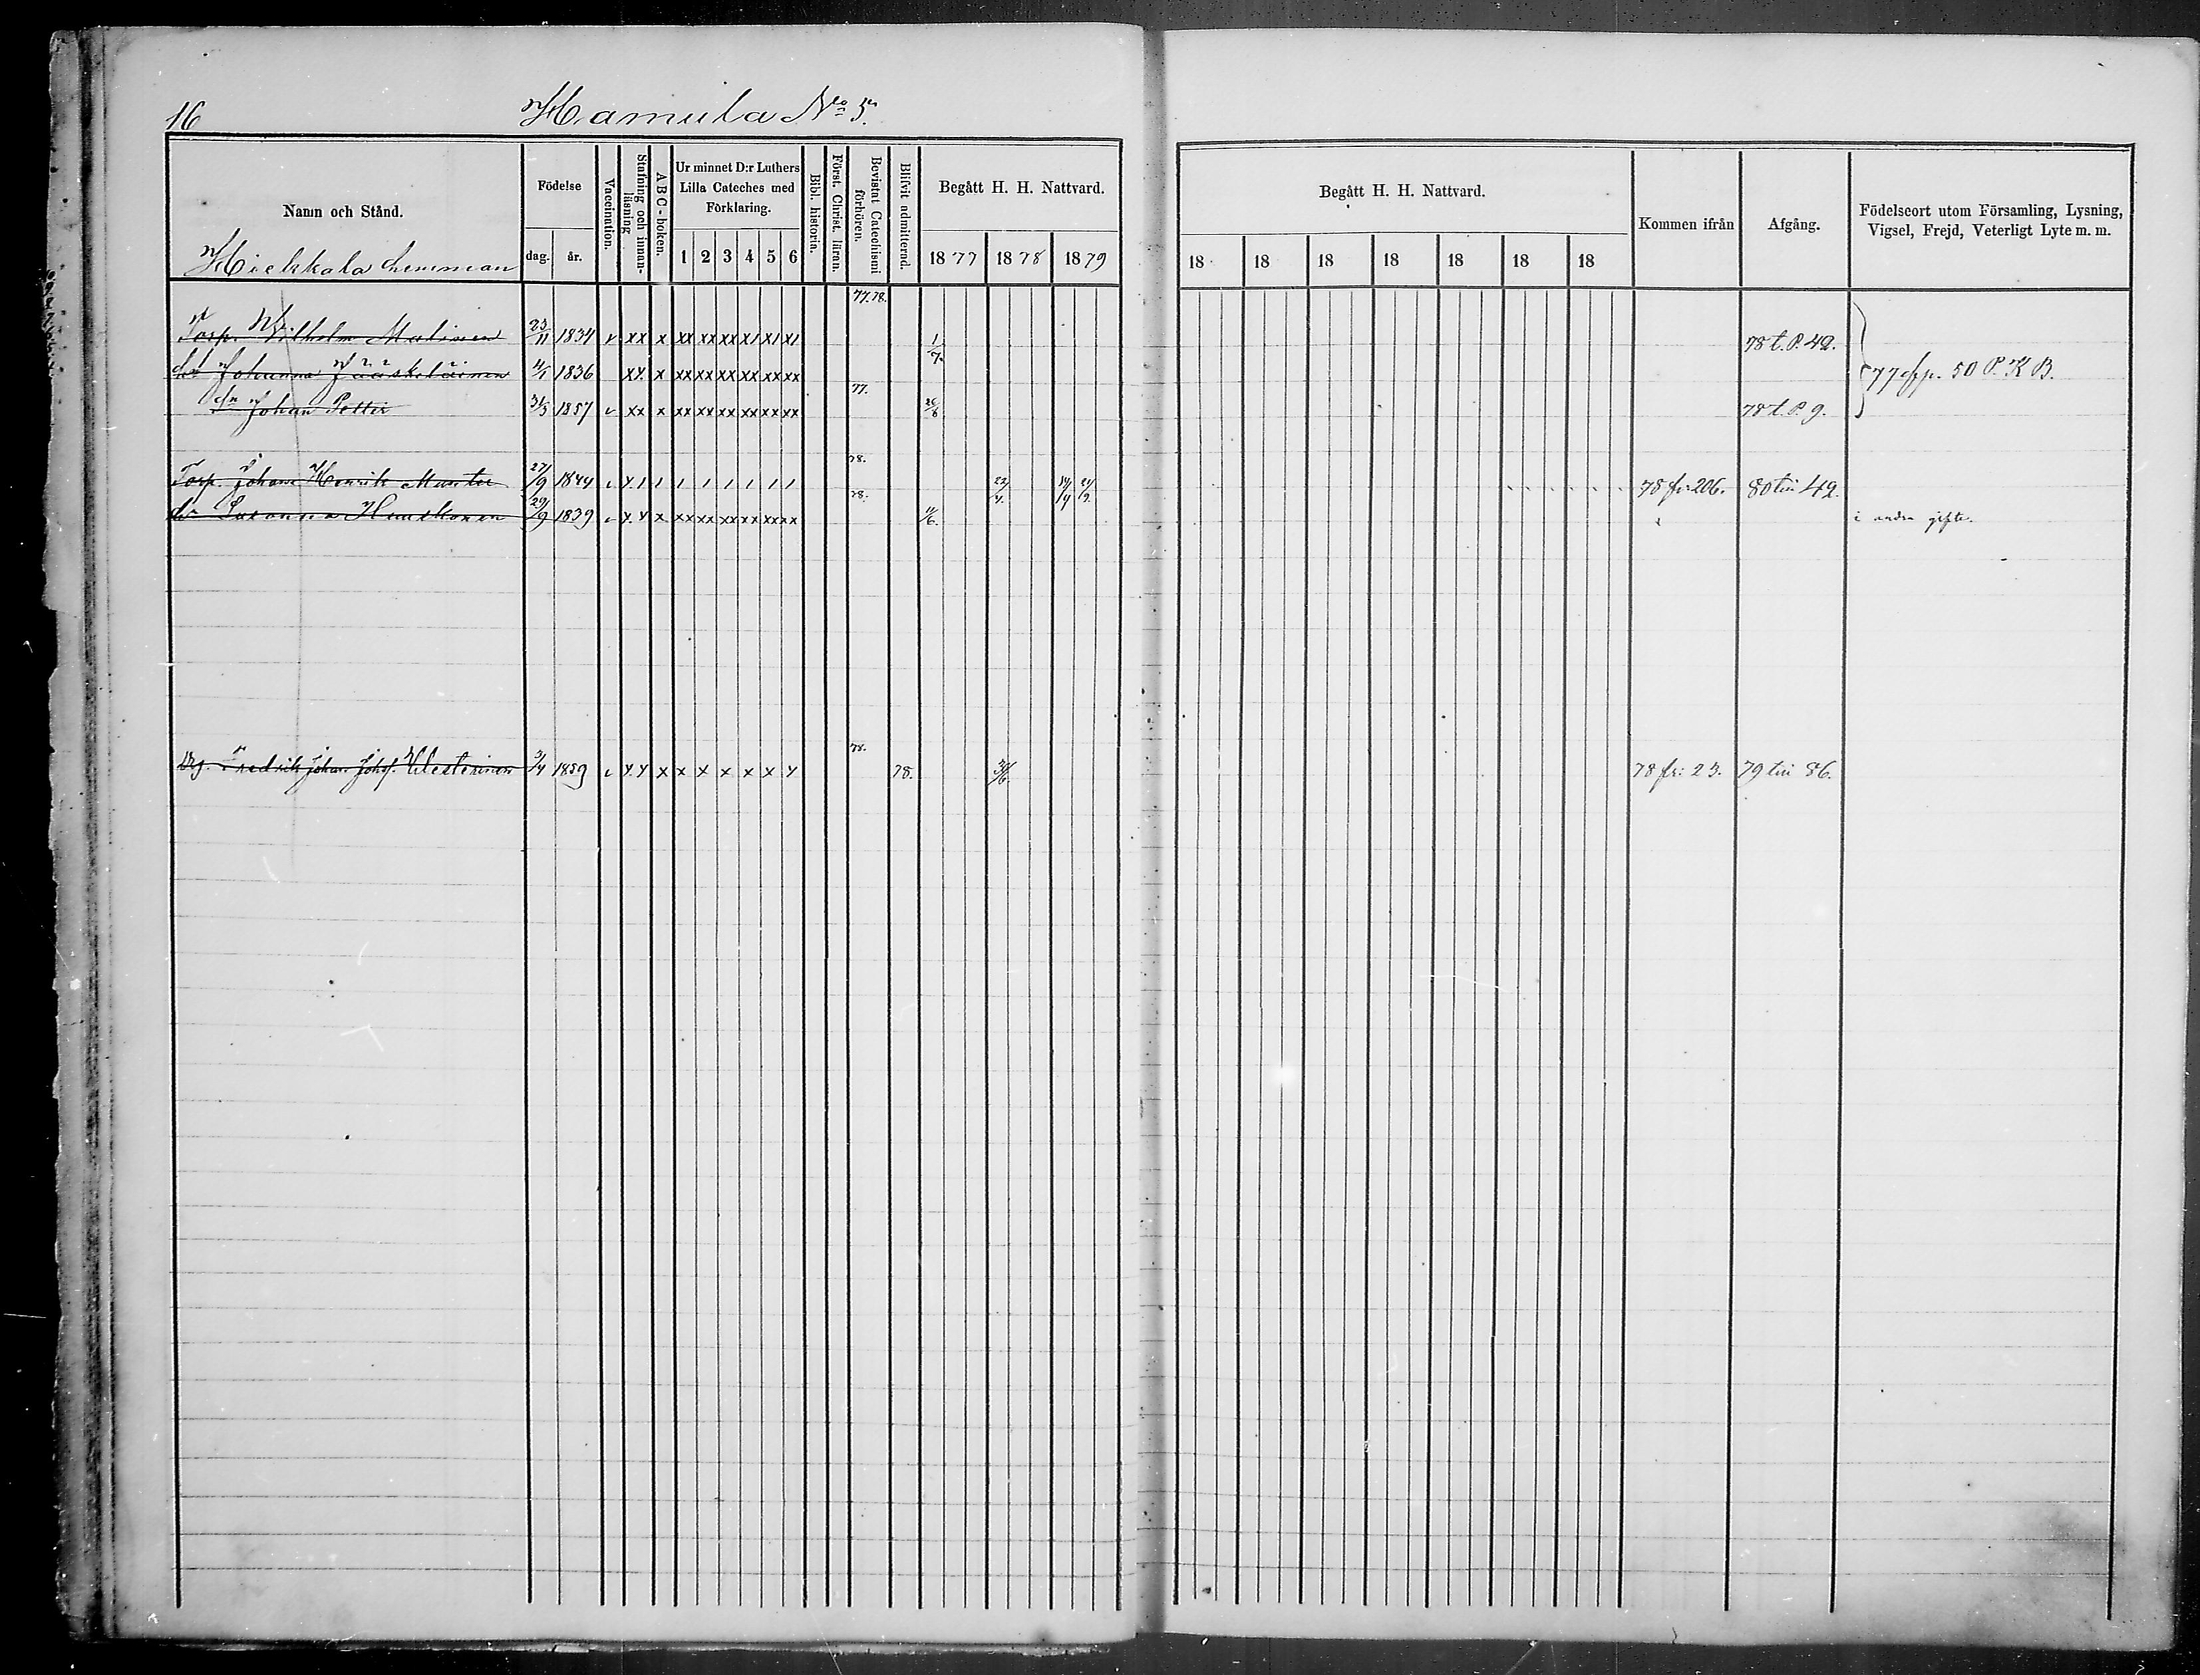 16 Hamula No 5.
Namn och Stånd.
Födelse
dag. år.
Vaccination.
Stafning och innanläsning
ABC-boken.
Ur minnet D:r Luthers Lilla Cateches med Förklaring.
1 2 3 4 5 6
Bibl. historia.
Först. Christ. läran.
Bevistat Catechismi förhören.
Blifvit admitterad.
Begått H. H. Nattvard.
18 77 18 78 18 79
Begått H. H. Nattvard.
18 18 18 18 18 18 18
Kommen ifrån
Afgång.
Födelseort utom Församling, Lysning, Vigsel, Frejd, Veterligt Lyte m. m.
hemman
77. 78.
Torp. Wilhelm Malinen 23/11 1834 v xx x xx xx xx x1 x1 x1 1/7. 78 t. P. 42.
Johanna Jääskeläinen 4/1 1836 xx x xx xx xx xx xx xx 77 50 P. K B.
77.
Johan Petter 31/3 1857 v xx x xx xx xx xx xx xx 26/8 78 t. P. 9.
78.
Torp. Johan Henrik 27/9 1844 78 fr: 206. 80 till 42.
78.
Susanna 29/9 1839 v x x x xx xx xx xx xx xx 11/6. i andra gifte.
78.
Drg. Fredrik Johan Johs. Westerinen 3/4 1859 v x x x x x x x x x 78. 30/6 78 fr: 23. 79 till 86.